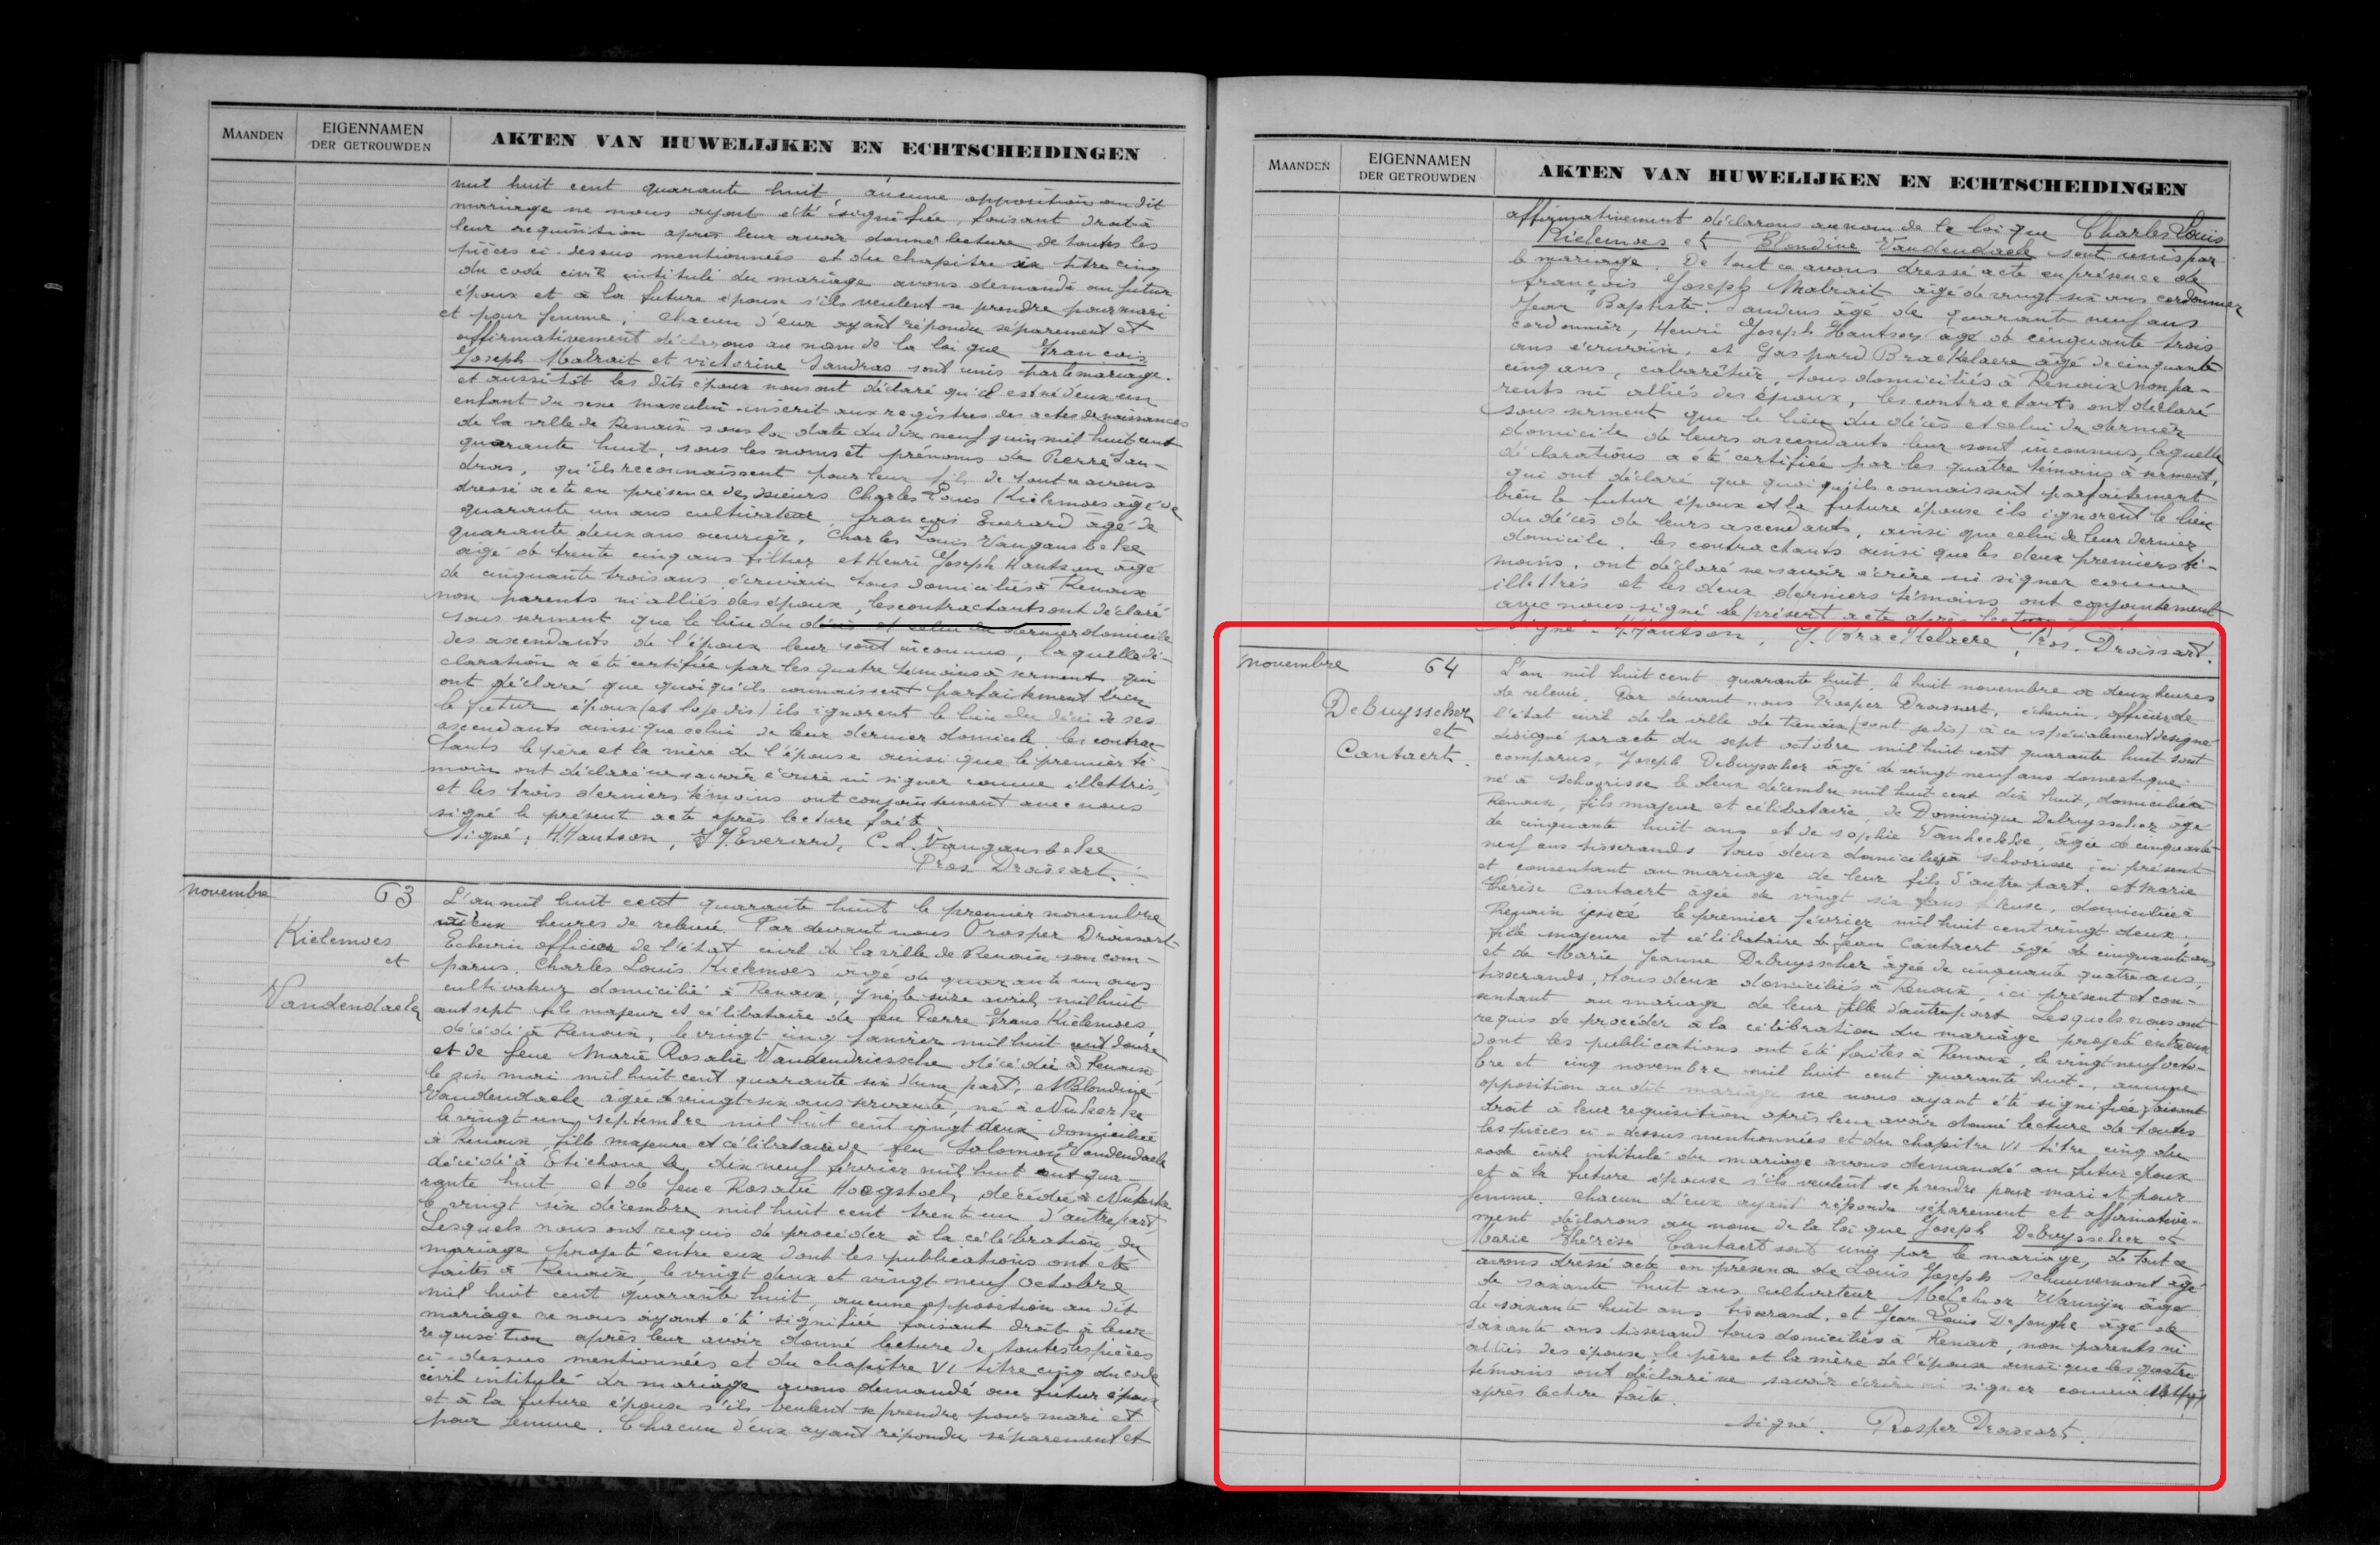 MAANDEN
EIGENNAMEN
DER GETROUWDEN
AKTEN VAN HUWELIJKEN EN ECHTSCHEIDINGEN
mil huit cent quarante huit, aucune opposition au dit
mariage ne nous ayant été signifiée, faisant droit à
leur requisition après leur avoir donné lecture de toutes les
pièces ci-dessus mentionnées et du chapitre six titre cinq
du code civil intitulé du mariage avons demandé au futur
époux et à la future épouse s'ils veulent se prendre pour mari
et pour femme, chacun d'eux ayant répondu séparement et
affirmativement déclarons au nom de la loi que François
Joseph Malrait et victorine Landras sont unis par le mariage.
et aussitôt les dits époux nous ont déclaré qu'il est né d'eux un
enfant du sexe masculin inscrit aux registres des actes de naissances
de la ville de Renaix sous la date du dix neuf juin mil huit cent
quarante huit, sous les noms et prénoms de Pierre Lan-
dras, qu'ils reconnaissent pour leur fils de tout ce avons
dressé acte en présence des sieurs Charles Louis Kielemoes âgé de
quarante un ans cultivateur, françois Everard âgé de
quarante deux ans ouvrier, Charles Louis Vangansbeke
âgé de trente cinq ans et Henri Joseph Hantson âgé
de cinquante trois ans écrivain tous domiciliés à Renaix
non parents ni alliés des époux, les contractants ont déclaré
sous serment que le lieu du décès et celui du dernier domicile
des ascendants de l'époux leur sont inconnus, laquelle dé-
claration a été certifiée par les quatre témoins à serment qui
ont déclaré que quoiqu'ils connaissent parfaitement bien
le futur époux (et ) ils ignorent le lieu du décès de ses
ascendants ainsi que celui de leur dernier domicile. les contrac-
tants le père et la mère de l'épouse ainsi que le premier té-
moin ont déclaré ne savoir écrire ni signer comme illettrés,
et les trois derniers témoins ont conjointement avec nous
signé le présent acte après lecture faite.
Signé: H Hantson, F J Everard, C. L. Vangansbeke
Pros Droissart.
novembre
63
Kielemoes
et
Vandendaele
L'an mil huit cent quarante huit le premier novembre
à deux heures de relevée. Par devant nous Prosper Droissart
Echevin officier de l'état civil de la ville de Renaix son com-
parus. Charles Louis Kielemoes âgé de quarante un ans
cultivateur domicilié à Renaix, y né le seize avril mil huit
cent sept fils majeur et célibataire de feu Pierre Frans Kielemoes,
décédé à Renaix, le vingt cinq janvier mil huit cent douze
et de feue Marie Rosalie Vandendriessche décédée à Renaix
le six mai mil huit cent quarante six d'une part; et Blondine
Vandendaele âgée de vingt six ans servante, né à Nukerke
le vingt un septembre mil huit cent vingt deux domiciliée
à Renaix, fille majeure et célibataire de feu Salomon Vandendaele
décédé à Etichove le dix neuf février mil huit cent qua-
rante huit et de feue Rosalie Hoogstoel, décédée à Nukerke
le vingt six décembre mil huit cent trente un d'autre part
Lesquels nous ont requis de procéder à la célébration du
mariage projeté entre eux dont les publications ont été
faites à Renaix, le vingt deux et vingt neuf octobre
mil huit cent quarante huit, aucune opposition au dit
mariage ne nous ayant été signifiée faisant droit à leur
requisition après leur avoir donné lecture de toutes les pièces
ci-dessus mentionnées et du chapitre VI titre cinq du code
civil intitulé du mariage avons demandé au futur époux
et à la future épouse s'ils veulent se prendre pour mari et
pour femme. Chacun d'eux ayant répondu séparement et
MAANDEN
EIGENNAMEN
DER GETROUWDEN
AKTEN VAN HUWELIJKEN EN ECHTSCHEIDINGEN
affirmativement déclarons au nom de la loi que Charles Louis
Kielemoes et Blondine Vandendaele sont unis par
le mariage. De tout ce avons dressé acte en présence de
françois Joseph Malrait âgé de vingt six ans cordonnier
Jean Baptiste âgé de quarante neuf ans
cordonnier, Henri Joseph Hantson âgé de cinquante trois
ans écrivain, et Gaspard Brackelaere âgé de cinquante
cinq ans, cabarétier, tous domiciliés à Renaix non pa-
rents ni alliés des époux, les contractants ont déclaré
sous serment que le lieu du décès et celui du dernier
domicile de leurs ascendants leur sont inconnus, laquelle
déclarations a été certifiée par les quatre témoins à serment,
qui ont déclaré que quoi qu'ils connaissent parfaitement
bien le futur époux et la future épouse ils ignorent le lieu
du décès de leurs ascendants, ainsi que celui de leur dernier
domicile. les contractants ainsi que les deux premiers té-
moins, ont déclaré ne savoir écrire ni signer comme
illettrés et les deux derniers témoins ont conjointement
avec nous signé le présent acte après lecture faite
Signé - H. Hantson, G. Brackelaere, Pros. Droissart.
novembre
64
Debuysscher
et
Cantaert.
L'an mil huit cent quarante huit, le huit novembre à deux heures
de relevée. Par devant nous Prosper Droissart, échevin, officier de
l'état civil de la ville de Renaix (sont je dis) à ce spécialement désigné
désigné par acte du sept octobre mil huit cent quarante huit sont
comparus, Joseph Debuysscher âgé de vingt neuf ans domestique
né à Schoorisse le deux décembre mil huit cent dix huit, domicilié à
Renaix, fils majeur et célibataire, de Dominique Debuysscher âgé
de cinquante huit ans et de Sophie Vanheckke, âgée de cinquante
neuf ans tisserands tous deux domiciliés à Schoorisse, ici présent
et consentant au mariage de leur fils d'autre part. et Marie
Thérèse Cantaert âgée de vingt six ans fileuse, domiciliée à
Renaix y née le premier février mil huit cent vingt deux.
fille majeure et célibataire de Jean Cantaert âgé de cinquante ans
et de Marie Jeanne Debuysscher âgée de cinquante quatre ans,
tisserands, tous deux domiciliés à Renaix, ici présent et con-
sentant au mariage de leur fille d'autre part. Lesquels nous ont
requis de procéder à la célébration du mariage projeté entre eux
dont les publications ont été faites à Renaix, le vingt neuf octo-
bre et cinq novembre mil huit cent quarante huit, aucune
opposition au dit mariage ne nous ayant été signifiée, faisant
droit à leur requisition après leur avoir donné lecture de toutes
les pièces ci-dessus mentionnées et du chapitre VI titre cinq du
code civil intitulé du mariage avons demandé au futur époux
et à la future épouse s'ils veulent se prendre pour mari et pour
femme. chacun d'eux ayant répondu séparement et affirmative-
ment déclarons au nom de la loi que Joseph Debuysscher et
Marie Thérèse Cantaert sont unis par le mariage, de tout ce
avons dressé acte en présence de Louis Joseph Schouvemont âgé
de soixante huit ans cultivateur Melchior Wannyn âgé
de soixante huit ans, tisserand, et Jean Louis Dejonghe âgé de
soixante ans tisserand tous domiciliés à Renaix, non parents ni
alliés des épouse, le père et la mère de l'épouse ainsi que les quatre
témoins ont déclaré ne savoir écrire ni signer comme
après lecture faite.
signé. Prosper Droissart.